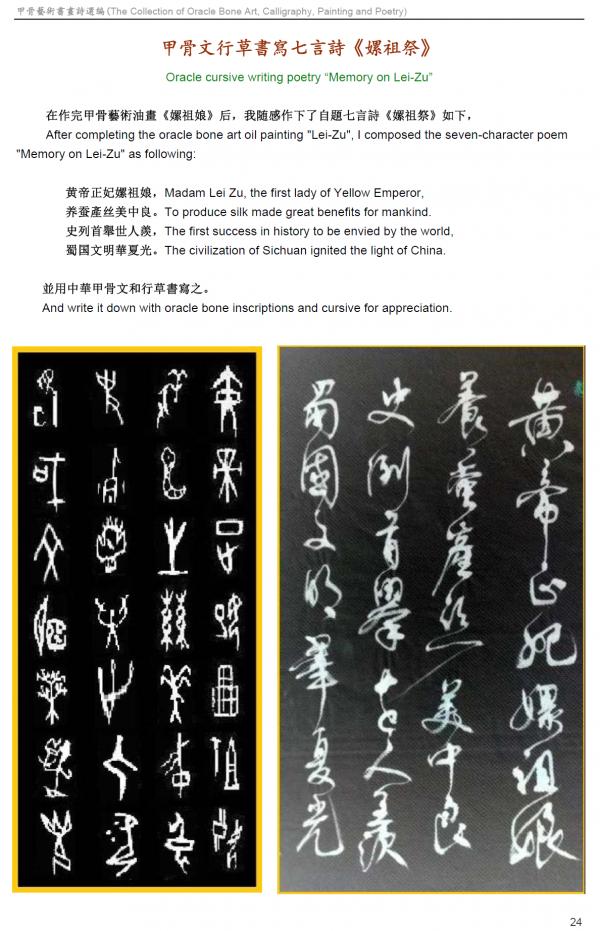 甲骨藝術書畫詩選編 (The Collection of Oracle Bone Art, Calligraphy, Painting and Poetry)
甲骨文行草書寫七言詩《嫘祖祭》
Oracle cursive writing poetry “Memory on Lei-Zu”
在作完甲骨藝術油畫《嫘祖娘》后，我随感作下了自題七言詩《嫘祖祭》如下，
After completing the oracle bone art oil painting "Lei-Zu", I composed the seven-character poem
"Memory on Lei-Zu" as following:
黄帝正妃嫘祖娘，Madam Lei Zu, the first lady of Yellow Emperor,
养蚕產丝美中良。To produce silk made great benefits for mankind.
史列首舉世人羨，The first success in history to be envied by the world,
蜀国文明華夏光。The civilization of Sichuan ignited the light of China.
並用中華甲骨文和行草書寫之。
And write it down with oracle bone inscriptions and cursive for appreciation.
黄帝正妃嫘祖娘
養蚕產丝美中良
史列首舉世人羨
蜀國文明華夏光
24